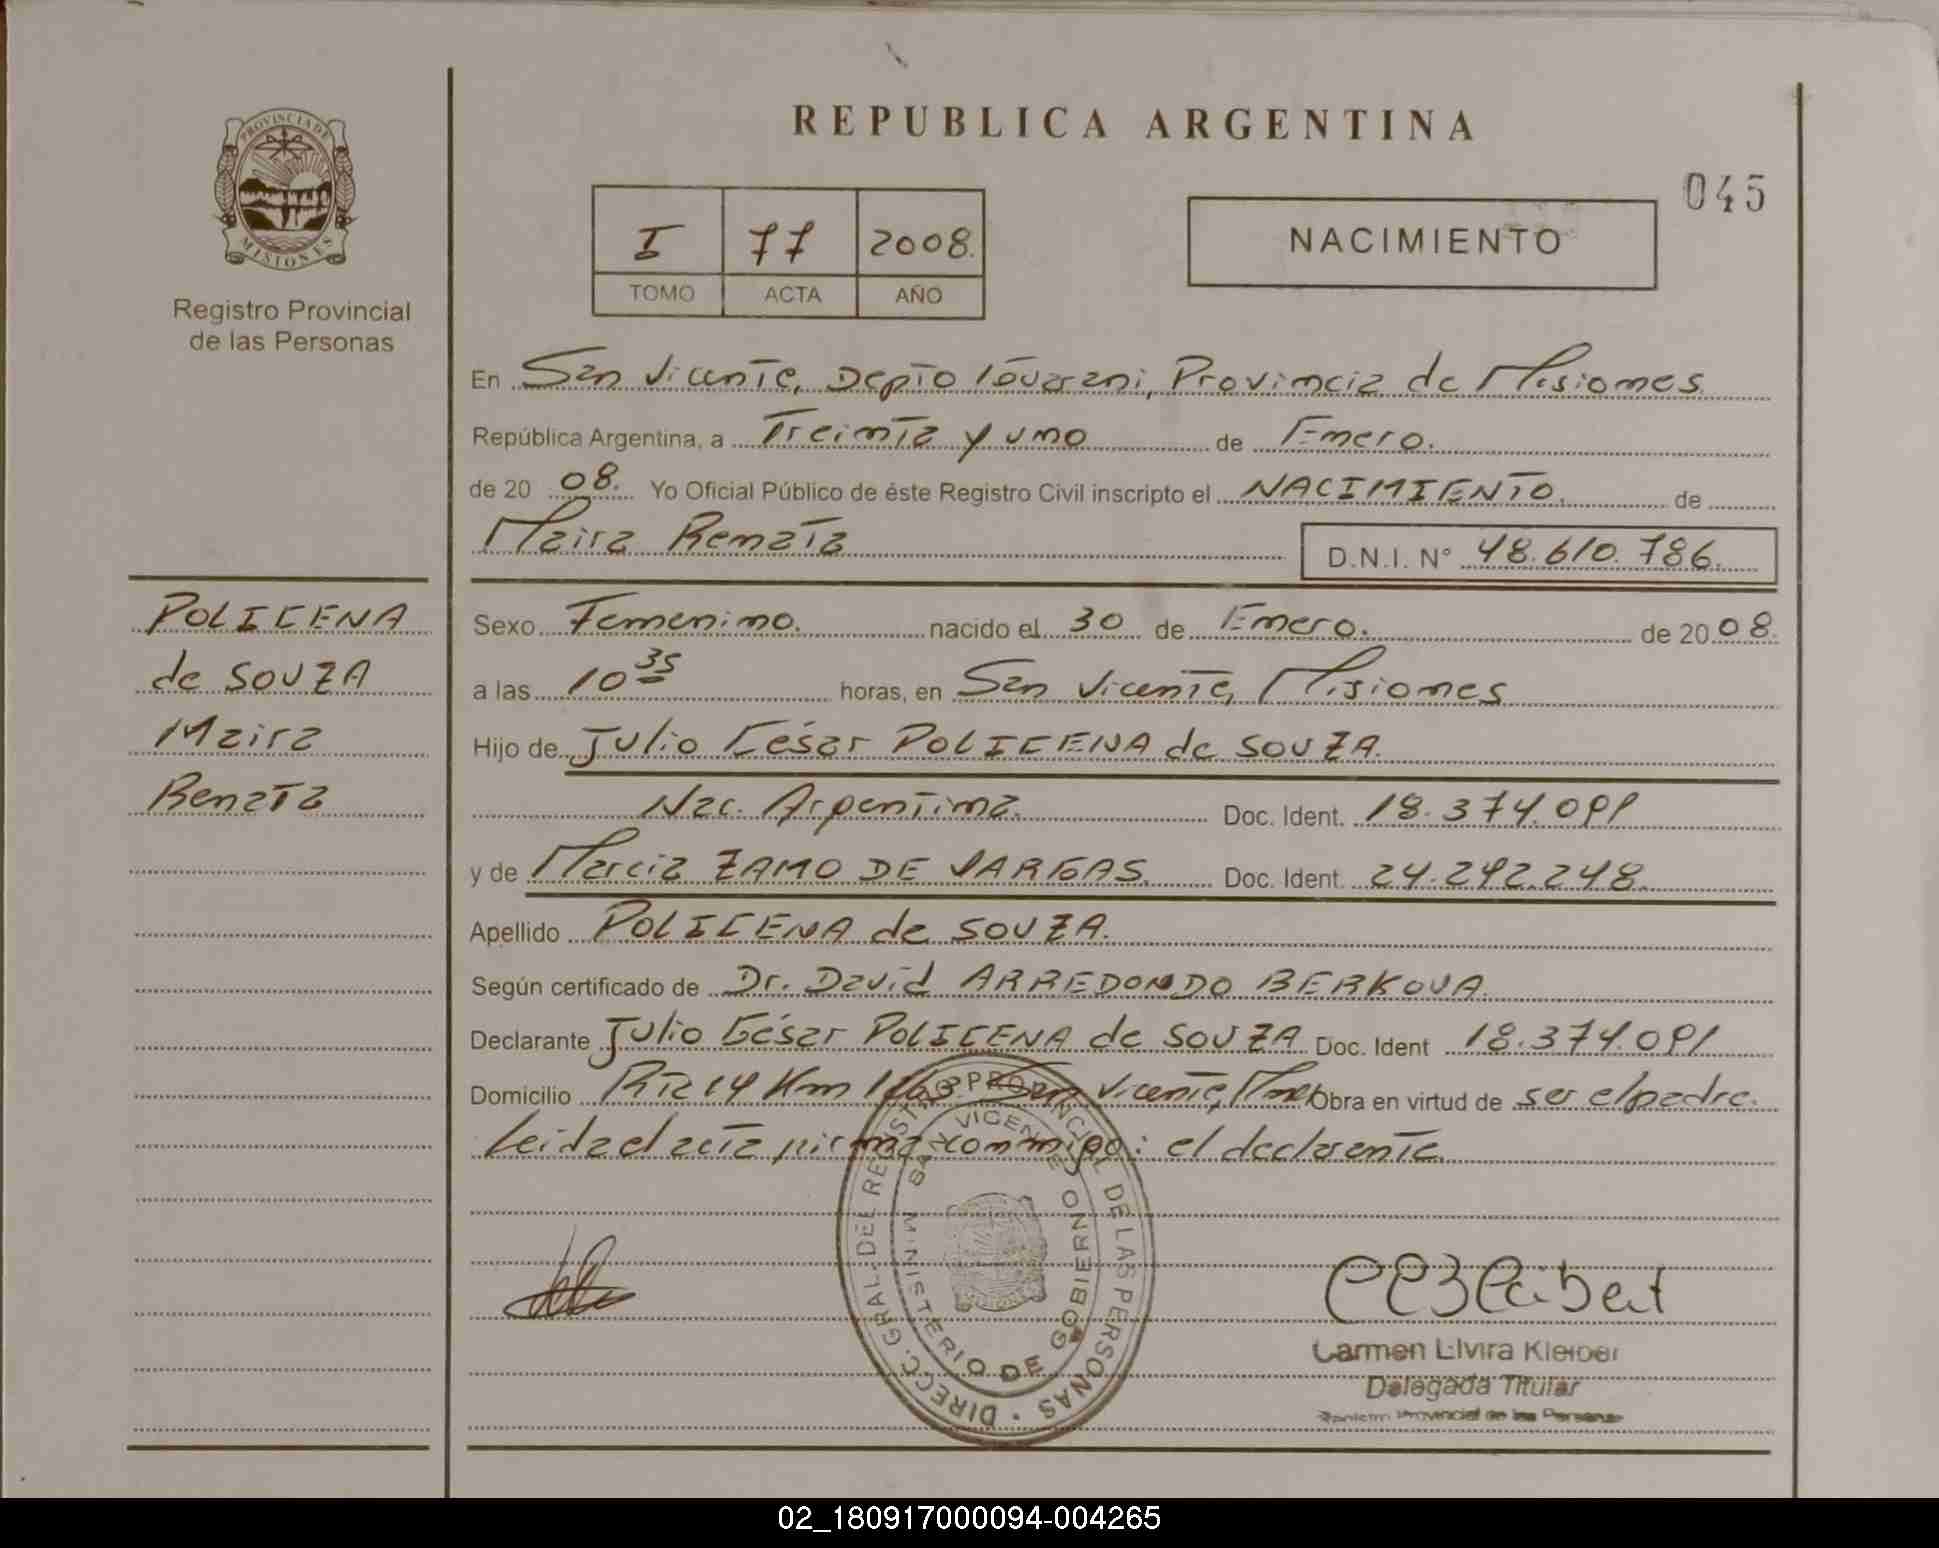 PROVINCIA DE
MISIONES
Registro Provincial
de las Personas
REPUBLICA ARGENTINA
045
I 77 2008.
TOMO ACTA AÑO
NACIMIENTO
En San Vicente, Depto Guarani, Provincia de Misiones
República Argentina, a Treinta y uno de Enero.
de 20 08. Yo Oficial Público de éste Registro Civil inscripto el NACIMIENTO. de
Maira Renata D.N.I. N° 48.610.786.
POLICENA
de SOUZA
Maira
Renata
Sexo Femenino. nacido el 30 de Enero. de 20 08.
a las 10 35 horas, en San Vicente, Misiones
Hijo de Julio César POLICENA de SOUZA.
Nac. Argentina. Doc. Ident. 18.374.091
y de Marcia ZAMO DE VARGAS. Doc. Ident. 24.292.248.
Apellido POLICENA de SOUZA.
Según certificado de Dr. David ARREDONDO BERKOVA.
Declarante Julio César POLICENA de SOUZA Doc. Ident 18.374.091
Domicilio Rta 14 Km San Vicente, Mnes Obra en virtud de ser el padre.
Leida el acta firma conmigo: el declarante.
DIRECC. GRAL. DEL REGISTRO PROVINCIAL DE LAS PERSONAS
SAN VICENTE
MINISTERIO DE GOBIERNO
Carmen Elvira Kleiber
Delegada Titular
Registro Provincial de las Personas
02_180917000094-004265